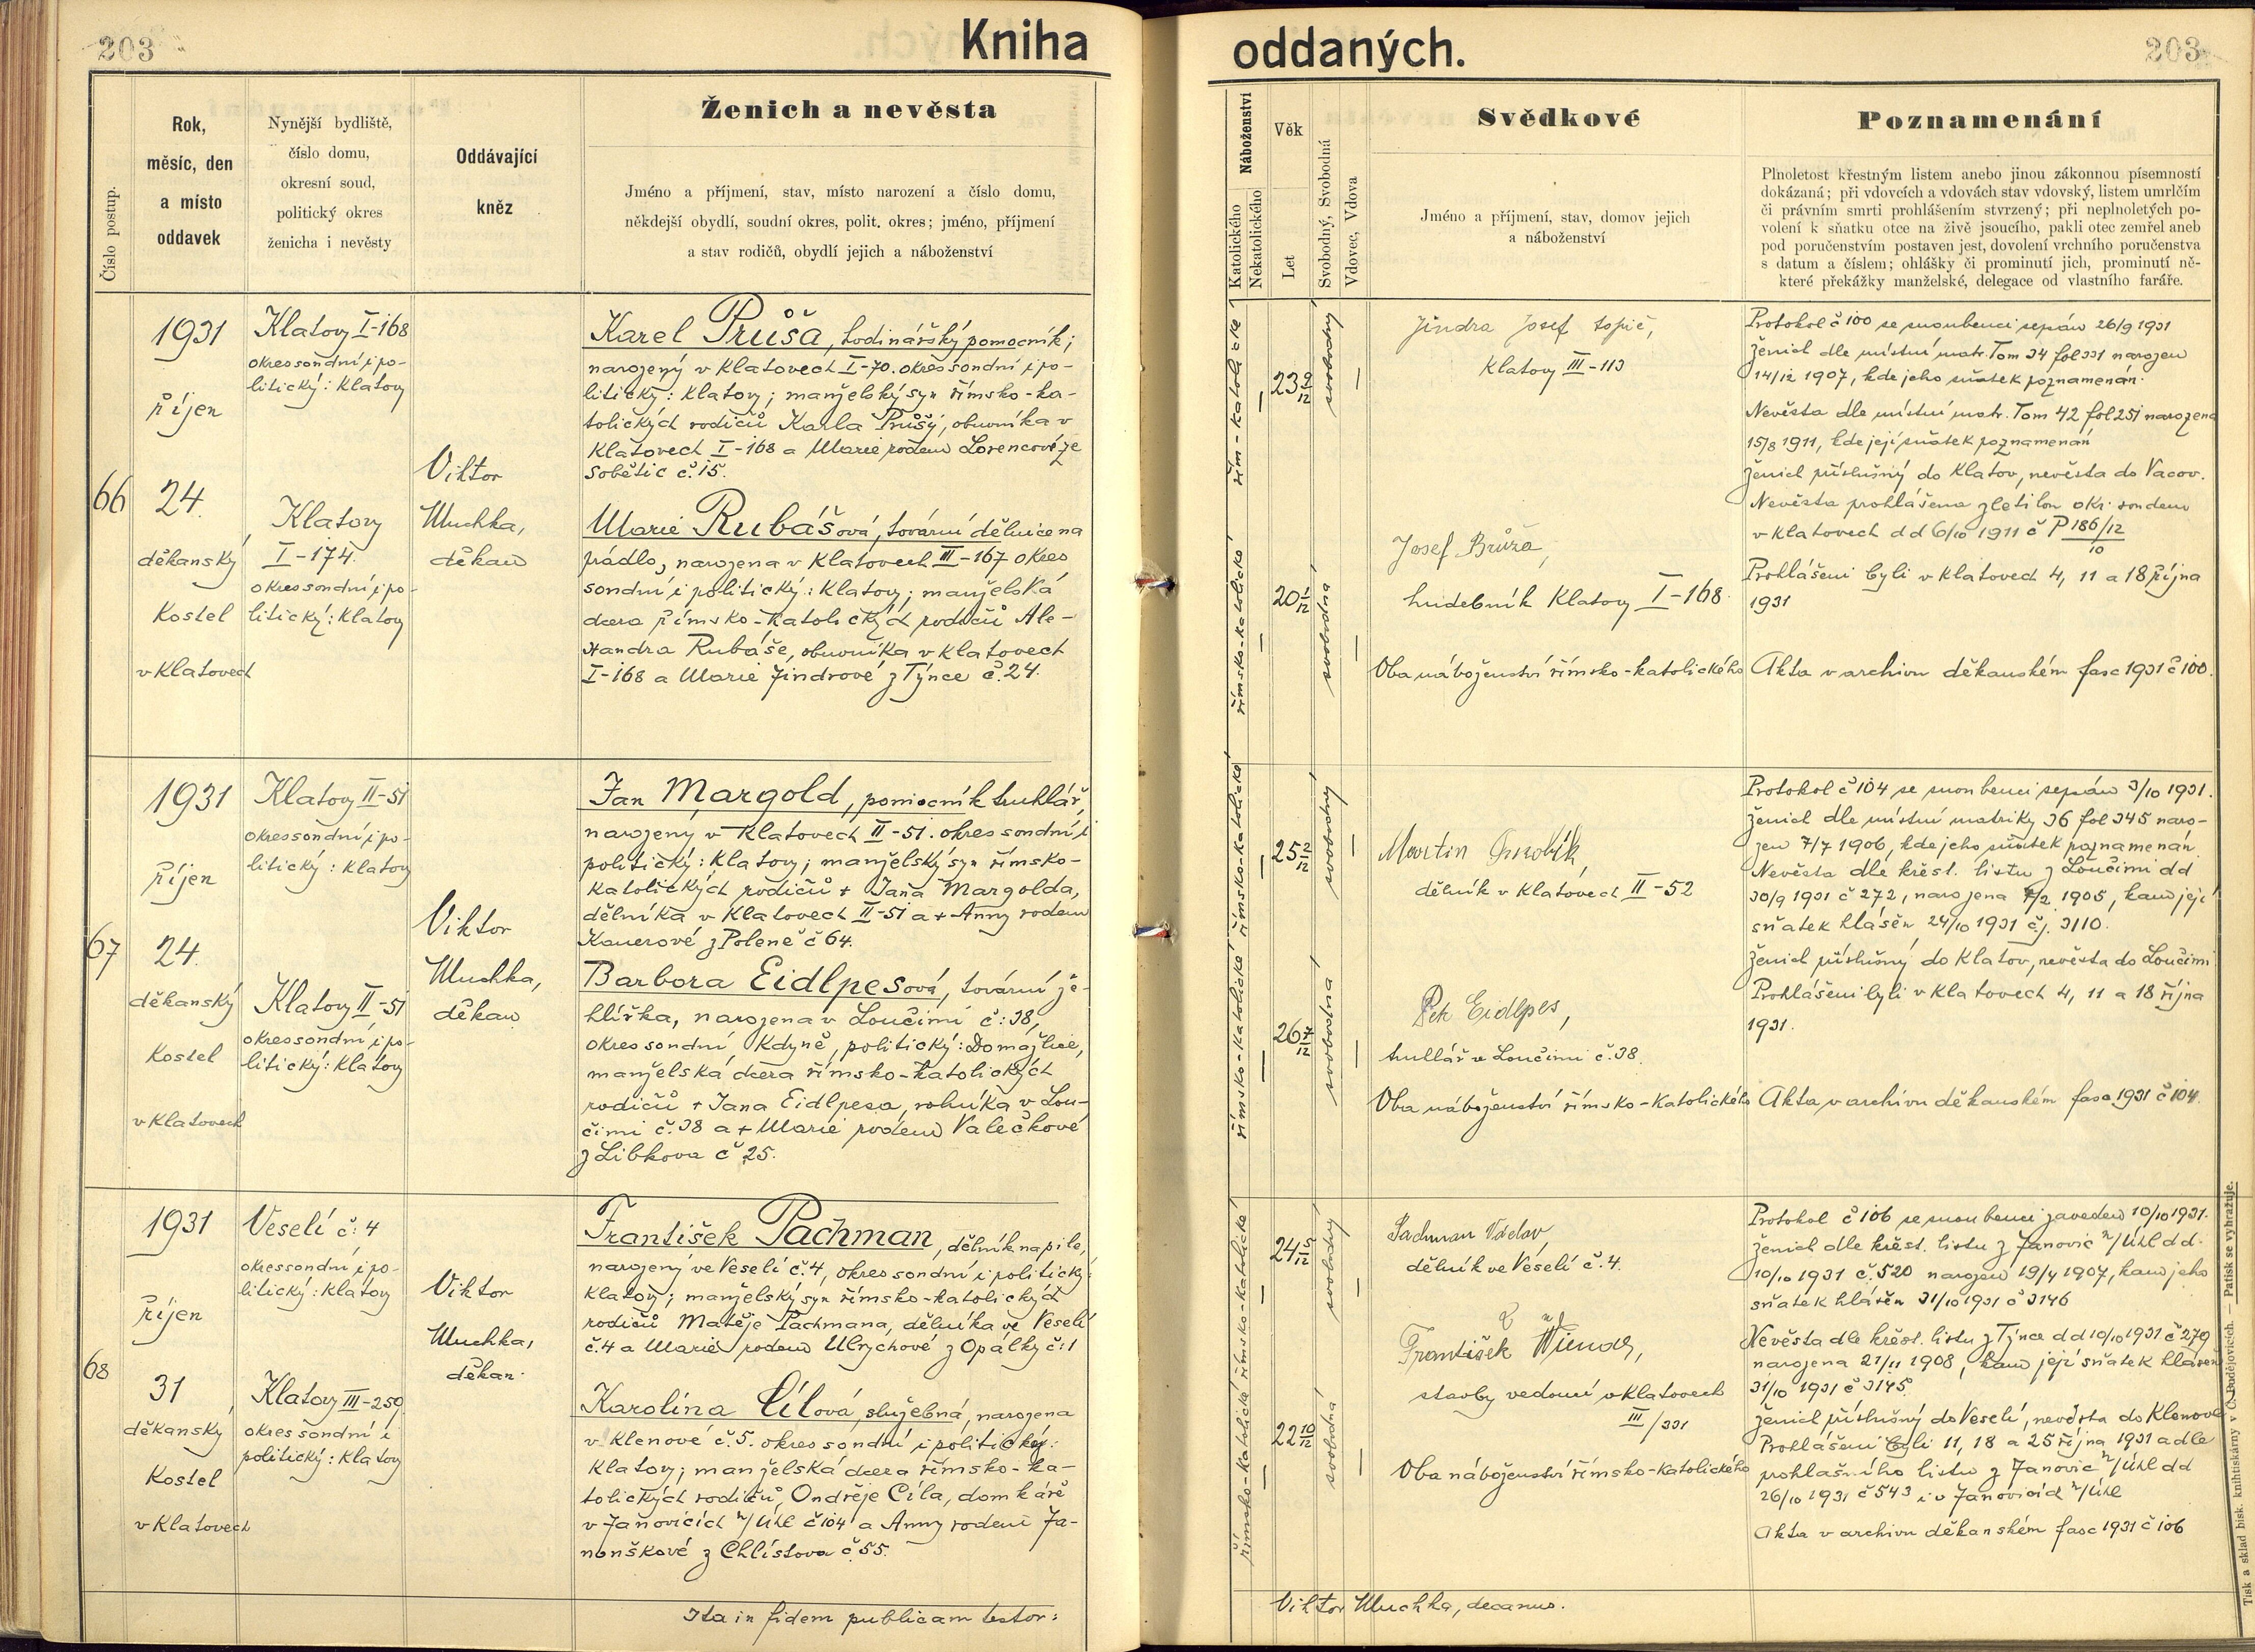 203
Kniha
oddaných.
203
Číslo postup.
Rok,
měsíc, den
a místo
oddavek
Nynější bydliště,
číslo domu,
okresní soud,
politický okres
ženicha i nevěsty
Oddávající
kněz
Ženich a nevěsta
Jméno a příjmení, stav, místo narození a číslo domu,
někdejší obydlí, soudní okres, polit. okres; jméno, příjmení
a stav rodičů, obydlí jejich a náboženství
Náboženství
Katolického
Nekatolického
Věk
Let
Svobodný, Svobodná
Vdovec, Vdova
Svědkové
Jméno a příjmení, stav, domov jejich
a náboženství
Poznamenání
Plnoletost křestným listem anebo jinou zákonnou písemností
dokázaná; při vdovcích a vdovách stav vdovský, listem umrlčím
či právním smrti prohlášením stvrzený; při neplnoletých po-
volení k sňatku otce na živě jsoucího, pakli otec zemřel aneb
pod poručenstvím postaven jest, dovolení vrchního poručenstva
s datum a číslem; ohlášky či prominutí jich, prominutí ně-
které překážky manželské, delegace od vlastního faráře.
66
1931
říjen
24.
děkanský
Kostel
v Klatovech
Klatovy I-168
okres soudní i po-
litický: Klatovy
Klatovy
I-174.
okres soudní i po-
litický: Klatovy
Viktor
Muchka,
děkan
Karel Průša, hodinářský pomocník;
narozený v Klatovech I-70. okres soudní i po-
litický: Klatovy; manželský syn římsko-ka-
tolických rodičů Karla Průšy, obuvníka v
Klatovech I-168 a Marie rodem Lorencové ze
Sobětic č. 15.
Marie Rubášová, tovární dělnice na
prádlo, narozena v Klatovech III-167 okres
soudní i politický: Klatovy; manželská
dcera římsko-katolických rodičů Ale-
xandra Rubáše, obuvníka v Klatovech
I-168 a Marie Jindrové z Týnce č. 24.
řím-katolické
římsko-katolické
23 9/12
20 1/12
svobodný
svobodná
Jindra Josef topič,
Klatovy III-113
Josef Brůža,
hudebník Klatovy I-168.
Oba náboženství římsko-katolického
Protokol č 100 se snoubenci sepsán 26/9 1931
Ženich dle místní matr. Tom 34 fol 331 narozen
14/12 1907, kde jeho sňatek poznamenán.
Nevěsta dle místní matr. Tom 42 fol 251 narozena
15/8 1911, kde její sňatek poznamenán
Ženich příslušný do Klatov, nevěsta do Vacov.
Nevěsta prohlášena zletilou okr. soudem
v Klatovech d d 6/10 1911 č P 186/12
10
Prohlášeni byli v Klatovech 4, 11 a 18 října
1931
Akta v archivu děkanském fasc 1931 č 100.
67
1931
říjen
24.
děkanský
Kostel
v Klatovech
Klatovy II-51
okres soudní i po-
litický: Klatovy
Klatovy II-51
okres soudní i po-
litický: Klatovy
Viktor
Muchka,
děkan
Jan Margold, pomocník truhlář,
narozený v Klatovech II-51. okres soudní i
politický: Klatovy; manželský syn římsko-
katolických rodičů + Jana Margolda,
dělníka v Klatovech II-51 a + Anny rodem
Kauerové z Poleně č 64.
Barbora Eidlpesová, tovární že-
hlířka, narozena v Loučimi č: 38,
okres soudní Kdyně, politický: Domažlice,
manželská dcera římsko-katolických
rodičů + Jana Eidlpesa, rolníka v Lou-
čimi č. 38 a + Marie rodem Valečkové
z Libkova č 25.
římsko-katolické
římsko-katolické
25 2/12
26 7/12
svobodný
svobodná
Martin
dělník v Klatovech II-52
Petr Eidlpes,
truhlář v Loučimi č. 38.
Oba náboženství římsko-katolického
Protokol č 104 se snoubenci sepsán 3/10 1931.
Ženich dle místní matriky 36 fol 345 naro-
zen 7/7 1906, kde jeho sňatek poznamenán.
Nevěsta dle křest. listu z Loučimi d d
30/9 1931 č 272, narozena 4/2 1905, kam její
sňatek hlášen 24/10 1931 č.j. 3110.
Ženich příslušný do Klatov, nevěsta do Loučimi
Prohlášeni byli v Klatovech 4, 11 a 18 října
1931.
Akta v archivu děkanském fasc 1931 č 104.
68
1931
říjen
31
děkanský
Kostel
v Klatovech
Veselí č: 4
okres soudní i po-
litický: Klatovy
Klatovy III-259
okres soudní i
politický: Klatovy
Viktor
Muchka,
děkan.
František Pachman, dělník na pile,
narozený ve Veselí č. 4, okres soudní i politický:
Klatovy; manželský syn římsko-katolických
rodičů Matěje Pachmana, dělníka ve Veselí
č. 4 a Marie rodem Ulrychové z Opálky č: 1
Karolína Cílová, služebná, narozena
v Klenové č. 5. okres soudní i politický:
Klatovy; manželská dcera římsko-ka-
tolických rodičů, Ondřeje Cíla, domkáře
v Janovicích n/Úhl č 104 a Anny rodem Ja-
nouškové z Chlistova č 55.
římsko-katolické
římsko-katolické
24 5/12
22 10/12
svobodný
svobodná
Pachman Václav,
dělník ve Veselí č. 4.
František
stavby vedoucí v Klatovech
III/331
Oba náboženství římsko-katolického
Protokol č 106 se snoubenci zaveden 10/10 1931.
Ženich dle křest. listu z Janovic n/Úhl d d.
10/10 1931 č. 520 narozen 19/4 1907, kam jeho
sňatek hlášen 31/10 1931 č 3146
Nevěsta dle křest. listu z Týnce d d 10/10 1931 č 279
narozena 21/11 1908, kam její sňatek hlášen
31/10 1931 č 3145.
Ženich příslušný do Veselí, nevěsta do Klenové
Prohlášeni byli 11, 18 a 25 října 1931 a dle
prohlašního listu z Janovic n/Úhl d d
26/10 1931 č 543 i v Janovicích n/Úhl
Akta v archivu děkanském fasc 1931 č 106
Ita in fidem publicam testor:
Viktor Muchka, decanus.
Tisk a sklad bisk. knihtiskárny v Č. Budějovicích. — Patisk se vyhražuje.